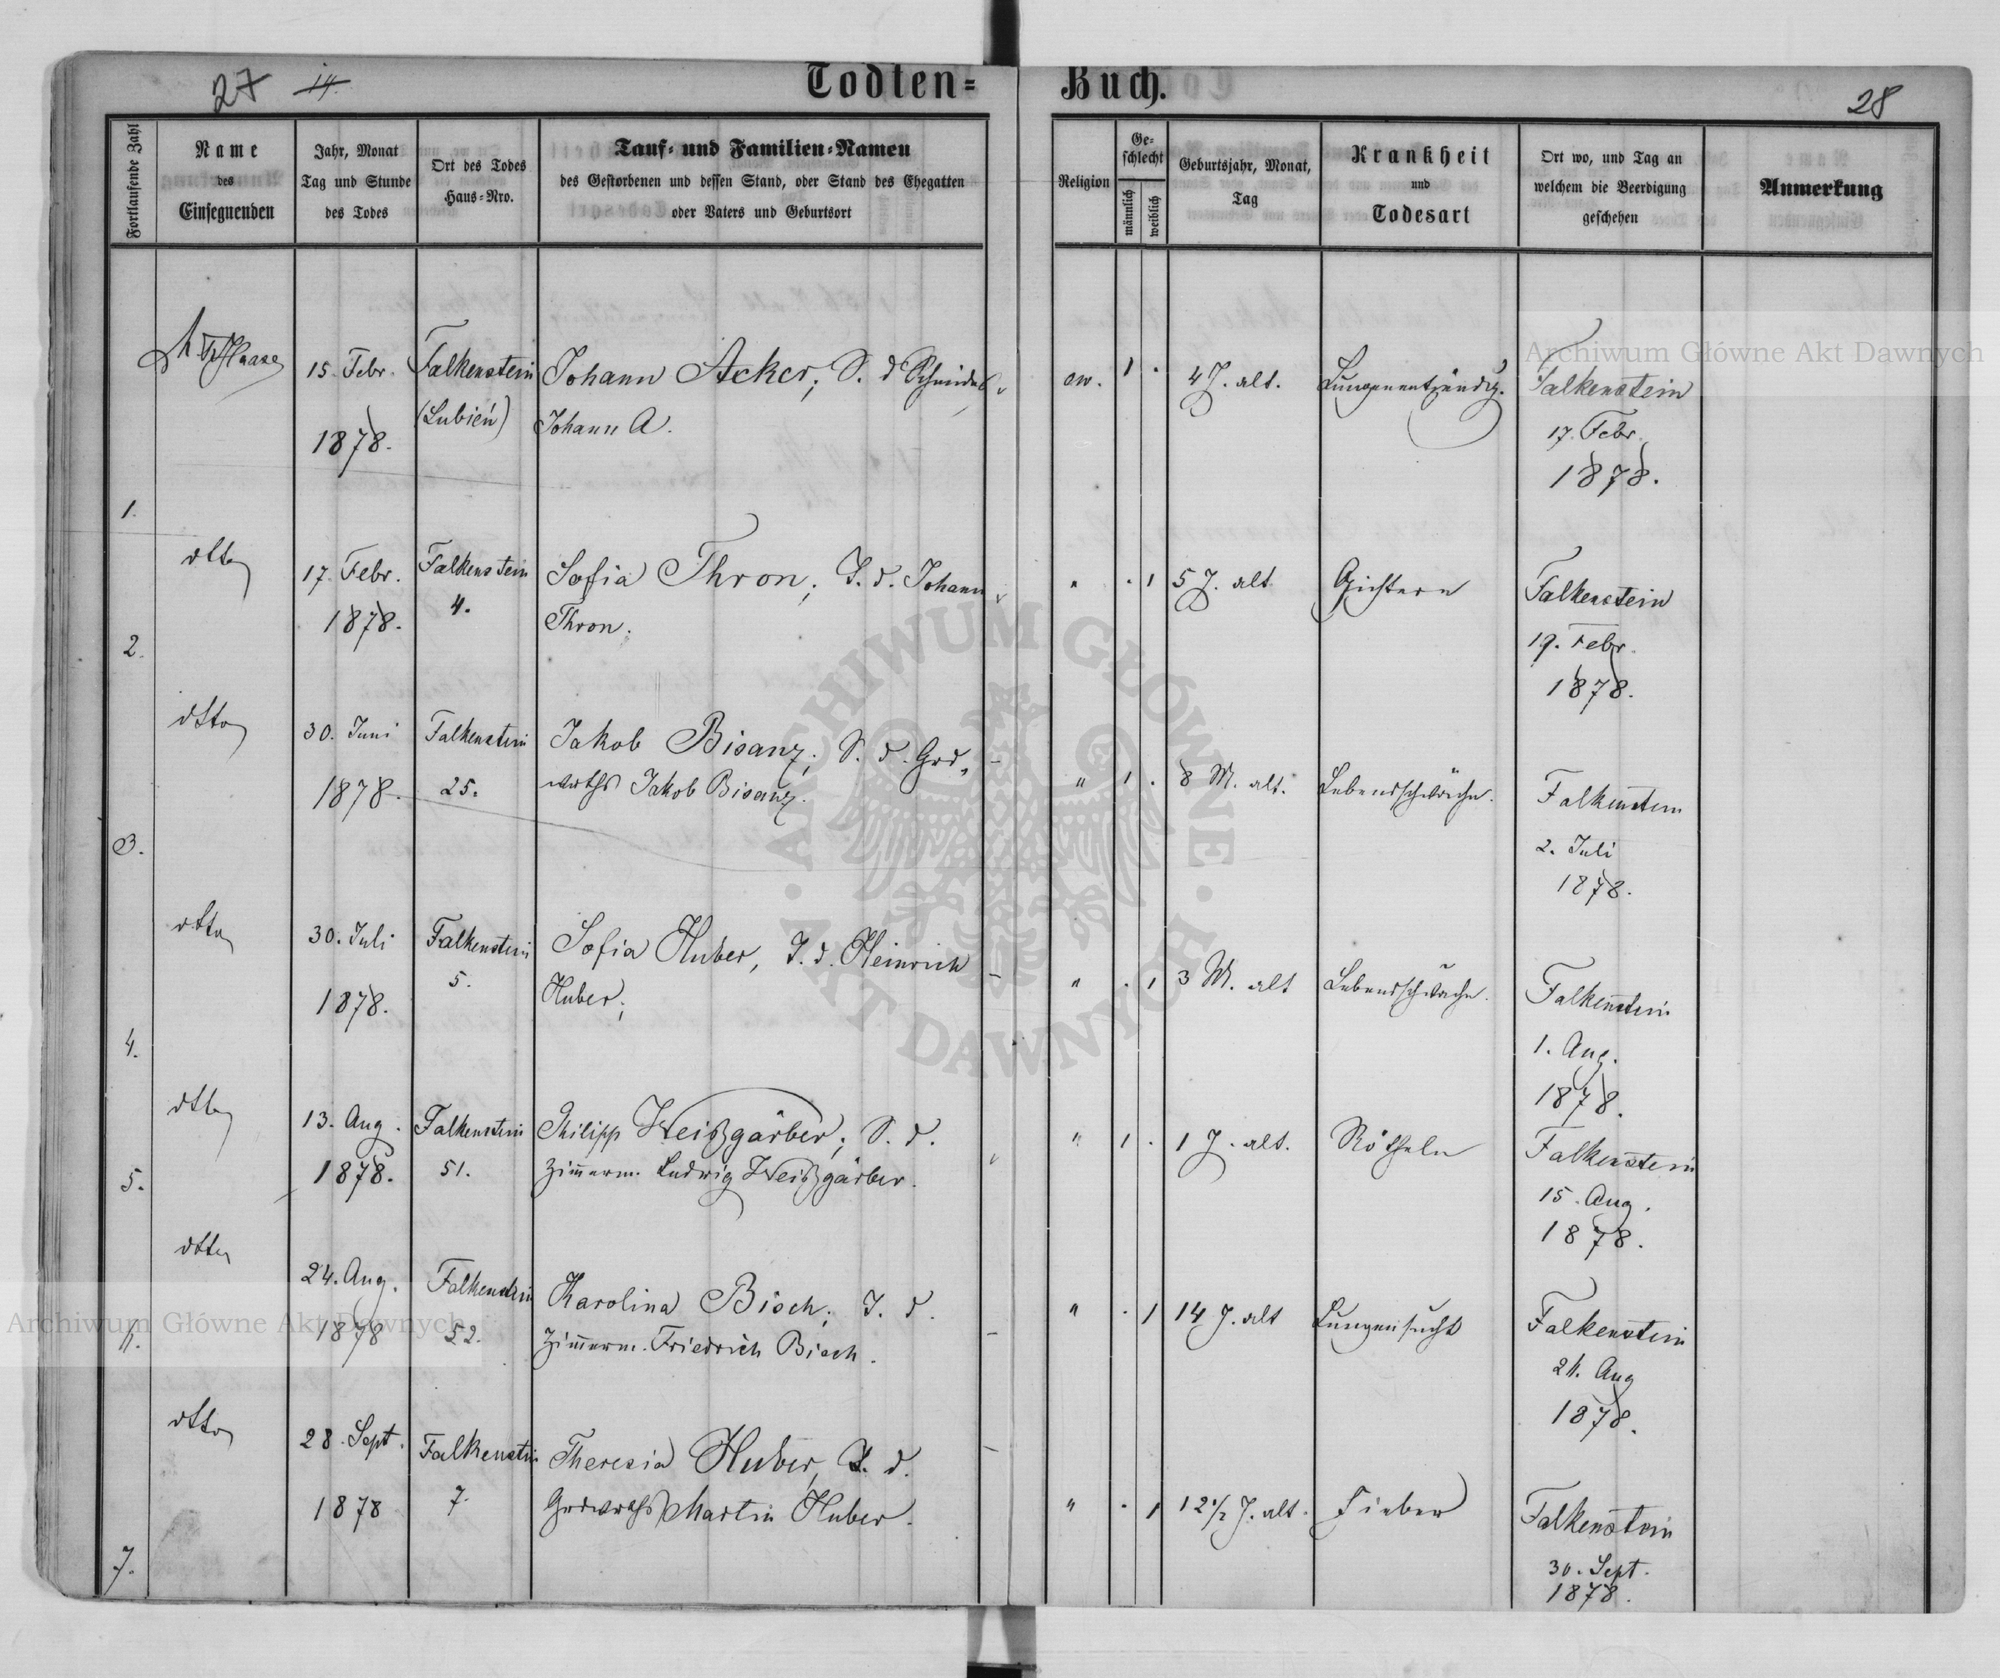 27 14.
Todten-Buch.
28
Fortlaufende Zahl
Name
des
Einsegnenden
Jahr, Monat
Tag und Stunde
des Todes
Ort des Todes
Haus-Nro.
Tauf- und Familien-Namen
des Gestorbenen und dessen Stand, oder Stand des Ehegatten
oder Vaters und Geburtsort
Religion
Ge-
schlecht
männlich
weiblich
Geburtsjahr, Monat,
Tag
Krankheit
und
Todesart
Ort wo, und Tag an
welchem die Beerdigung
geschehen
Anmerkung
1.
Haase
15. Febr.
1878.
Falkenstein
(Lubień)
Johann Acker, S. d Schmides
Johann A.
ev.
1 .
4 J. alt.
Lungenentzündg.
Falkenstein
17. Febr.
1878.
2.
dtto
17. Febr.
1878.
Falkenstein
4.
Sofia Thron, T. d. Johann
Thron.
"
. 1
5 J. alt
Gichtern
Falkenstein
19. Febr.
1878.
3.
dtto
30. Juni
1878.
Falkenstein
25.
Jakob Bisanz, S. d. Grd-
wrths Jakob Bisanz.
"
1 .
8 M. alt.
Lebensschwäche.
Falkenstein
2. Juli
1878.
4.
dtto
30. Juli
1878.
Falkenstein
5.
Sofia Huber, T. d. Heinrich
Huber,
"
. 1
3 M. alt
Lebensschwäche.
Falkenstein
1. Aug.
1878.
5.
dtto
13. Aug.
1878.
Falkenstein
51.
Philipp Weißgärber, S. d.
Zim̅erm. Ludwig Weißgärber.
"
1 .
1 J. alt.
Rötheln
Falkenstein
15. Aug.
1878.
6.
dtto
24. Aug.
1878
Falkenstein
52.
Karolina Bisch, T. d.
Zim̅erm. Friedrich Bisch.
"
. 1
14 J. alt
Lungensucht
Falkenstein
26. Aug
1878.
7.
dtto
28. Sept.
1878
Falkenstein
7.
Theresia Huber, T. d.
Grdwrths Martin Huber.
"
. 1
12 1/2 J. alt.
Fieber
Falkenstein
30. Sept.
1878.
Archiwum Główne Akt Dawnych
Archiwum Główne Akt Dawnych
· ARCHIWUM GŁÓWNE · AKT DAWNYCH